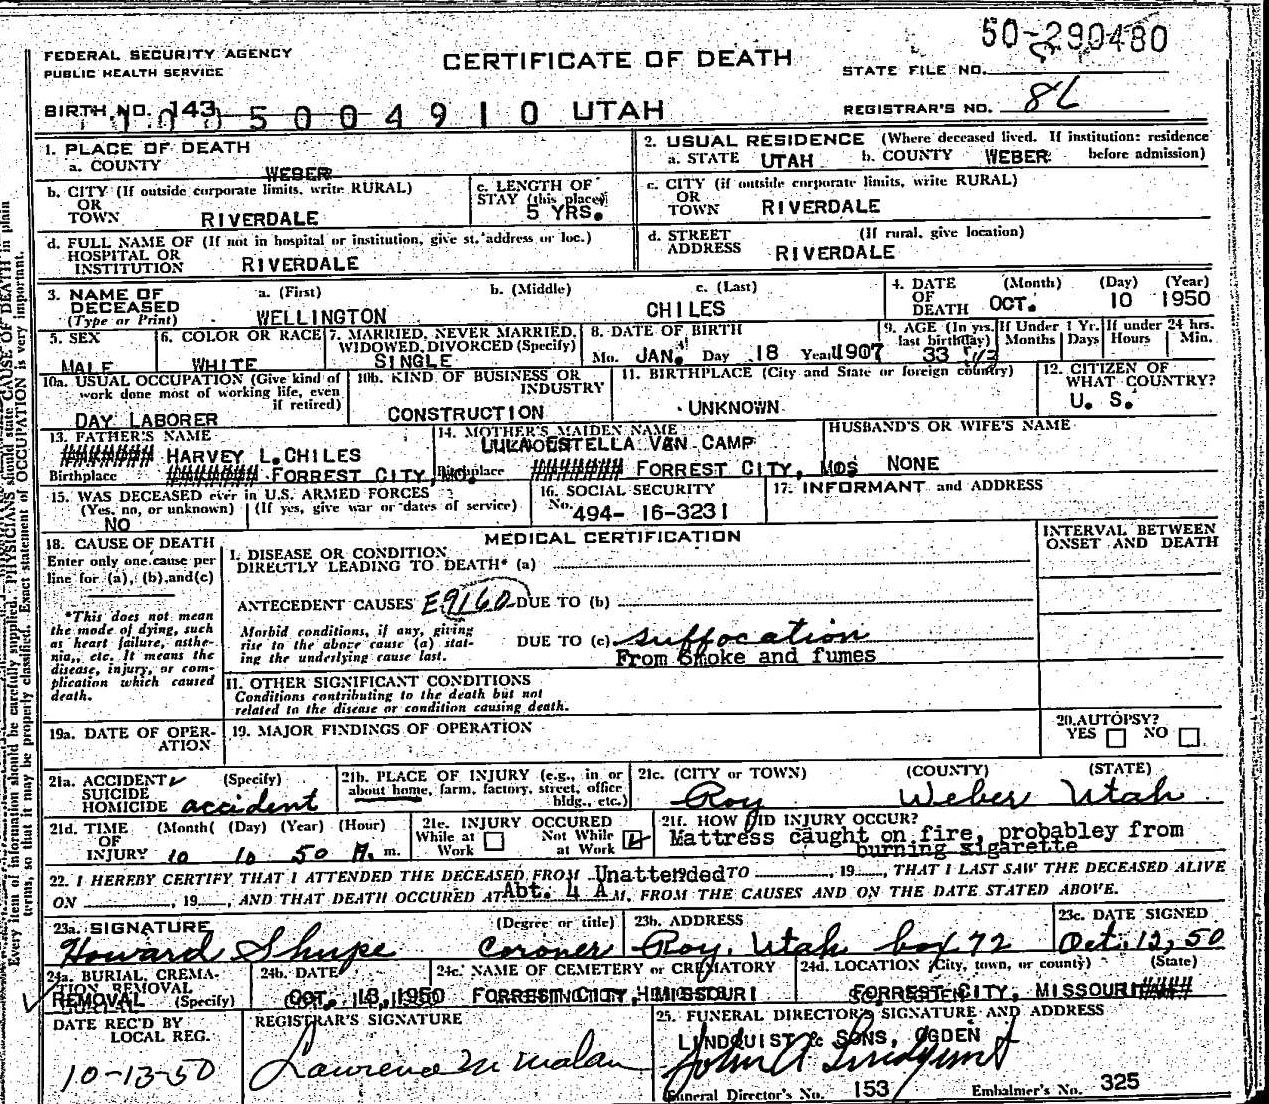 50-290480
FEDERAL SECURITY AGENCY
PUBLIC HEALTH SERVICE
CERTIFICATE OF DEATH
STATE FILE NO.
BIRTH NO. 143
5004910 UTAH
REGISTRAR'S NO. 86
1. PLACE OF DEATH
a. COUNTY WEBER
2. USUAL RESIDENCE (Where deceased lived. If institution: residence before admission)
a. STATE UTAH b. COUNTY WEBER
b. CITY (If outside corporate limits, write RURAL)
OR
TOWN RIVERDALE
c. LENGTH OF
STAY (this place)
5 YRS.
c. CITY (if outside corporate limits, write RURAL)
OR
TOWN RIVERDALE
d. FULL NAME OF (If not in hospital or institution, give st. address or loc.)
HOSPITAL OR
INSTITUTION RIVERDALE
d. STREET (If rural, give location)
ADDRESS RIVERDALE
3. NAME OF DECEASED (Type or Print)
a. (First) b. (Middle) c. (Last)
WELLINGTON CHILES
4. DATE OF DEATH (Month) (Day) (Year)
OCT. 10 1950
5. SEX
MALE
6. COLOR OR RACE
WHITE
7. MARRIED, NEVER MARRIED,
WIDOWED, DIVORCED (Specify)
SINGLE
8. DATE OF BIRTH
Mo. JAN. Day 18 Year 1907
9. AGE (In yrs. last birthday)
33
If Under 1 Yr. Months Days
If under 24 hrs. Hours Min.
10a. USUAL OCCUPATION (Give kind of
work done most of working life, even
if retired)
DAY LABORER
10b. KIND OF BUSINESS OR
INDUSTRY
CONSTRUCTION
11. BIRTHPLACE (City and State or foreign country)
UNKNOWN
12. CITIZEN OF
WHAT COUNTRY?
U. S.
13. FATHER'S NAME
HARVEY L. CHILES
Birthplace FORREST CITY, MO.
14. MOTHER'S MAIDEN NAME
ESTELLA VAN CAMP
Birthplace FORREST CITY, MOS
HUSBAND'S OR WIFE'S NAME
NONE
15. WAS DECEASED ever in U.S. ARMED FORCES ?
(Yes, no, or unknown) (If yes, give war or dates of service)
NO
16. SOCIAL SECURITY
No. 494- 16-3231
17. INFORMANT and ADDRESS
MEDICAL CERTIFICATION
INTERVAL BETWEEN
ONSET AND DEATH
18. CAUSE OF DEATH
Enter only one cause per
line for (a), (b), and (c)
*This does not mean
the mode of dying, such
as heart failure, asthe-
nia, etc. It means the
disease, injury, or com-
plication which caused
death.
I. DISEASE OR CONDITION
DIRECTLY LEADING TO DEATH* (a)
ANTECEDENT CAUSES E9160 DUE TO (b)
Morbid conditions, if any, giving
rise to the above cause (a) stat-
ing the underlying cause last.
DUE TO (c) suffocation
From Smoke and fumes
II. OTHER SIGNIFICANT CONDITIONS
Conditions contributing to the death but not
related to the disease or condition causing death.
19a. DATE OF OPER-
ATION
19. MAJOR FINDINGS OF OPERATION
20. AUTOPSY?
YES NO
21a. ACCIDENT (Specify)
SUICIDE
HOMICIDE accident
21b. PLACE OF INJURY (e.g., in or
about home, farm, factory, street, office
bldg., etc.)
21c. (CITY or TOWN) (COUNTY) (STATE)
Roy Weber Utah
21d. TIME (Month( (Day) (Year) (Hour)
OF
INJURY 10 10 50 A. m.
21e. INJURY OCCURED
While at Work Not While at Work
21f. HOW DID INJURY OCCUR?
Mattress caught on fire, probabley from
burning sigarette
22. I HEREBY CERTIFY THAT I ATTENDED THE DECEASED FROM Unattended TO , 19 , THAT I LAST SAW THE DECEASED ALIVE
ON , 19 , AND THAT DEATH OCCURED AT Abt. 4 A M, FROM THE CAUSES AND ON THE DATE STATED ABOVE.
23a. SIGNATURE (Degree or title)
Howard Shupe Coroner
23b. ADDRESS
Roy, Utah box 72
23c. DATE SIGNED
Oct. 12, 50
24a. BURIAL, CREMA-
TION, REMOVAL
REMOVAL (Specify)
24b. DATE
OCT. 13, 1950
24c. NAME OF CEMETERY or CREMATORY
FORREST CITY, MISSOURI
24d. LOCATION (City, town, or county) (State)
FORREST CITY, MISSOURI
DATE REC'D BY
LOCAL REG.
10-13-50
REGISTRAR'S SIGNATURE
Lawrence M Malan
25. FUNERAL DIRECTOR'S SIGNATURE AND ADDRESS
LINDQUIST & SONS, OGDEN
John A Lindquist
Funeral Director's No. 153 Embalmer's No. 325
Every item of information should be carefully supplied. PHYSICIANS should state CAUSE OF DEATH in plain
terms, so that it may be properly classified. Exact statement of OCCUPATION is very important.